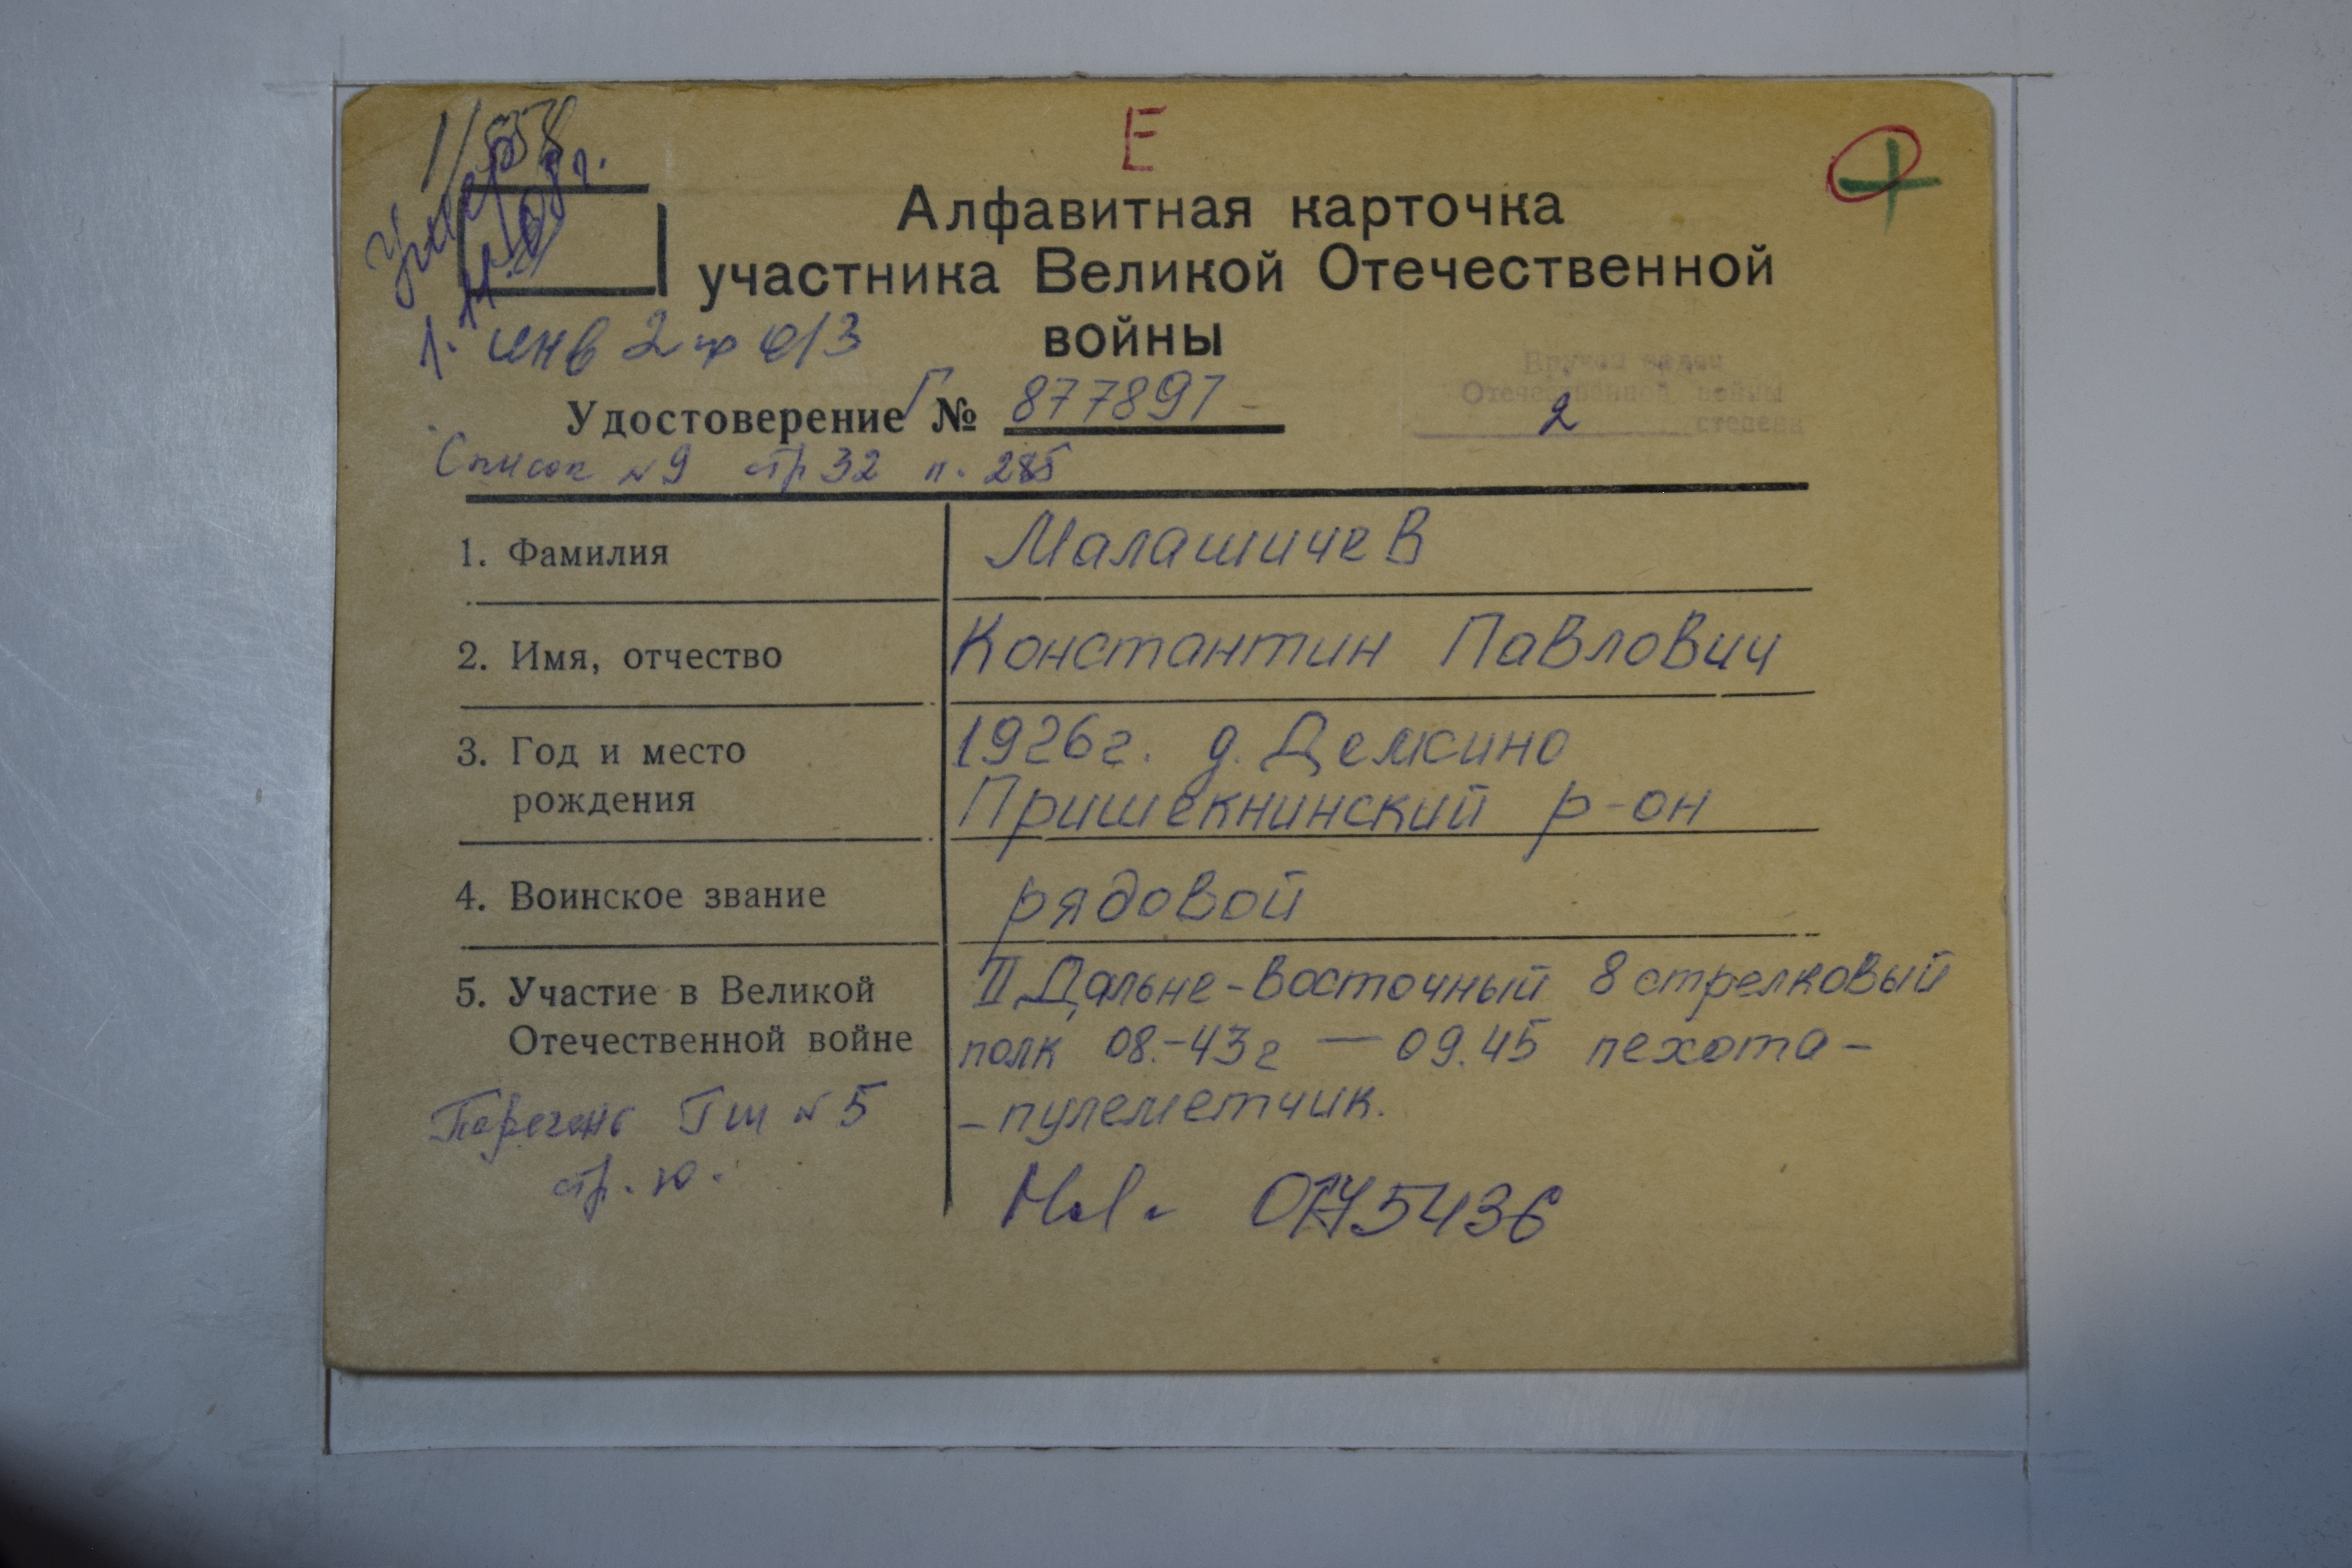 Е
1/558
Умер
11.08г.
Алфавитная карточка
участника Великой Отечественной
войны
1. инв 2 гр
Удостоверение Г № 877891
Вручен орден
Отечественной войны
2 степени
Список №9 стр 32 п. 285
1. Фамилия Малашичев
2. Имя, отчество Константин Павлович
3. Год и место 1926г. д. Демкино
рождения Пришекнинский р-он
4. Воинское звание рядовой
5. Участие в Великой II Дальне-Восточный 8 стрелковый
Отечественной войне полк 08.-43г — 09.45 пехота-
-пулеметчик.
Перечень Гш №5
стр. 10.
5436